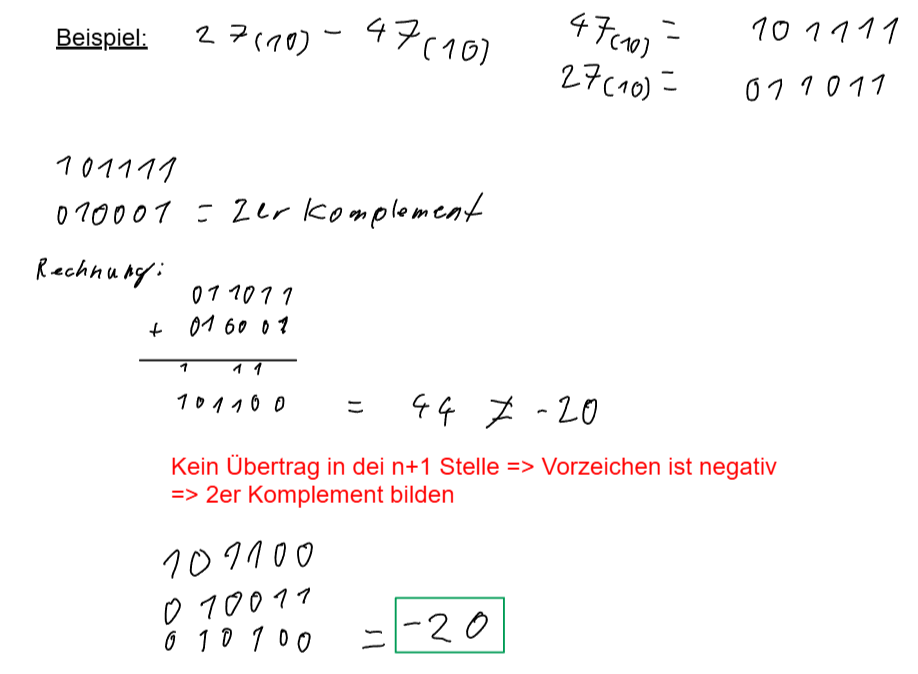 Beispiel: 27(10) - 47(10) 47(10) = 101111
27(10) = 011011
101111
010001 = 2er Komplement
Rechnung:
011011
+ 010001
1 11
101100 = 44 ≠ -20
Kein Übertrag in dei n+1 Stelle => Vorzeichen ist negativ
=> 2er Komplement bilden
101100
010011
010100 = -20